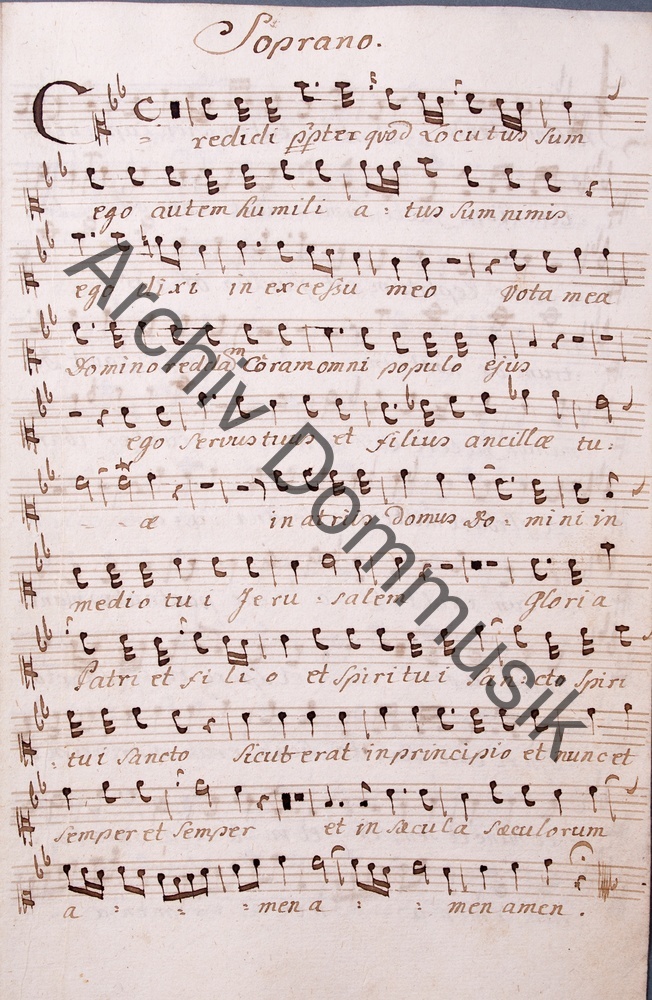 Soprano.
Credidi ppter quod Locutus sum
ego autem humili a : tus sum nimis
ego dixi in excessu meo Vota mea
Domino reddam Coram omni populo ejus
ego servus tuus et filius ancillæ tu :
- - æ in atriis domus Do - mini in
medio tui Jeru : salem Gloria
Patri et fi li o et Spiritui San : cto Spiri
: tui Sancto Sicut erat in principio et nunc et
Semper et Semper et in sæcula sæculorum
a : : : men a : : men amen .
Archiv Dommusik